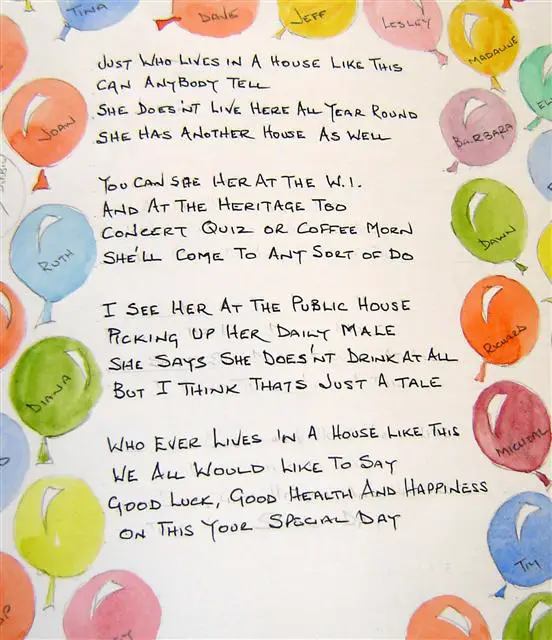 TINA
DAVE
JEFF
LESLEY
MADALINE
JOAN
BARBARA
RUTH
DAWN
RICHARD
DIANA
MICHEAL
TIM
JUST WHO LIVES IN A HOUSE LIKE THIS
CAN ANYBODY TELL
SHE DOES'NT LIVE HERE ALL YEAR ROUND
SHE HAS ANOTHER HOUSE AS WELL
YOU CAN SEE HER AT THE W.I.
AND AT THE HERITAGE TOO
CONCERT QUIZ OR COFFEE MORN
SHE'LL COME TO ANY SORT OF DO
I SEE HER AT THE PUBLIC HOUSE
PICKING UP HER DAILY MALE
SHE SAYS SHE DOES'NT DRINK AT ALL
BUT I THINK THATS JUST A TALE
WHO EVER LIVES IN A HOUSE LIKE THIS
WE ALL WOULD LIKE TO SAY
GOOD LUCK, GOOD HEALTH AND HAPPINESS
ON THIS YOUR SPECIAL DAY